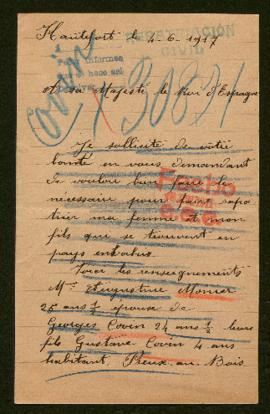 Hautefort le 4-6-1917
REPETICIÓN
CIVIL
Covin
informes
hace
30871
A sa Majesté le Roi d'Espagne
Je sollicite de votre
bonté en vous demandant
de vouloir bien faire le
nécessaire pour faire rapa
trier ma femme et mon
fils qui se trouvent en
pays envahis.
Voici les renseignements
Mme Monier
26 ans ½ épouse de
Georges Covin 24 ans ½ leurs
fils Gustave Covin 4 ans
habitant, Preux-au-Bois